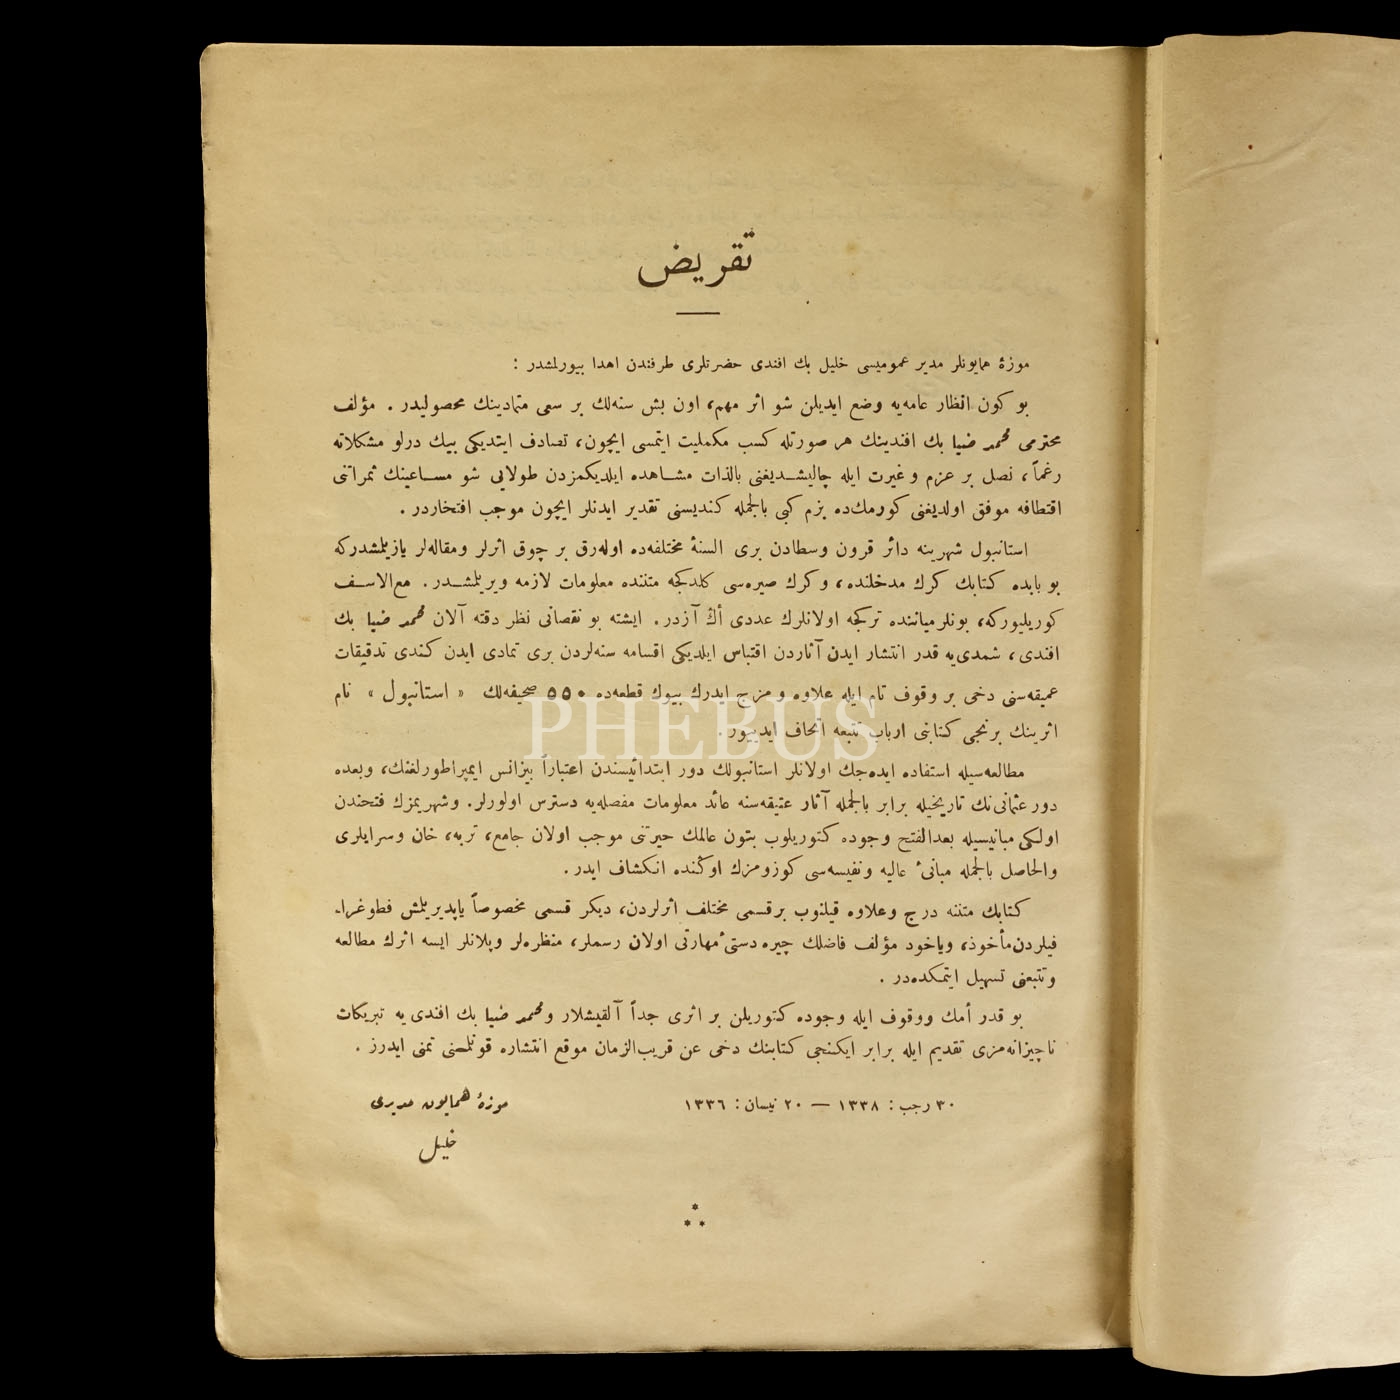 تقريض
موزهٔ همايونلر مدير عموميسى خليل بك افندى حضرتلرى طرفندن اهدا بيورلمشدر :
بو كون انظار عامه‌يه وضع ايديلن شو اثر مهم، اون بش سنه‌لك بر سعى متمادينك محصوليدر . مؤلف
محترمى محمد ضيا بك افندينك هر صورتله كسب مكمليت ايتمسى ايچون، تصادف ايتديكى بيك درلو مشكلاته
رغماً، نصل بر عزم و غيرت ايله چاليشديغنى بالذات مشاهده ايلديكمزدن طولايى شو مساعينك ثمراتنى
اقتطافه موفق اولديغنى كورمك‌ده بزم كبى بالجمله كنديسنى تقدير ايدنلر ايچون موجب افتخاردر .
استانبول شهرينه دائر قرون وسطادن برى السنهٔ مختلفه‌ده اوله‌رق بر چوق اثرلر ومقاله‌لر يازيلمشدركه
بو بابده كتابك كرك مدخلنده، وكرك صيره‌سى كلدكجه متننده معلومات لازمه ويريلمشدر . مع‌الاسف
كوريليوركه، بونلر ميانده تركجه اولانلرك عددى أڭ آزدر . ايشته بو نقصانى نظر دقته آلان محمد ضيا بك
افندى، شمدى‌يه قدر انتشار ايدن آثاردن اقتباس ايلديكى اقسامه سنه‌لردن برى تمادى ايدن كندى تدقيقات
عميقه‌سنى دخى بر وقوف تام ايله علاوه و مزج ايدرك بيوك قطعه‌ده ٥٥٠ صحيفه‌لك « استانبول » نام
اثرينك برنجى كتابنى ارباب تتبعه اتحاف ايدييور .
PHEBUS
مطالعه‌سيله استفاده ايده‌جك اولانلر استانبولك دور ابتدائيسندن اعتباراً بيزانس ايمپراطورلغنك، وبعده
دور عثمانى‌نك تاريخيله برابر بالجمله آثار عتيقه‌سنه عائد معلومات مفصله‌يه دسترس اولورلر. وشهريمزك فتحندن
اولكى مبانيسيله بعدالفتح وجوده كتوريلوب بتون عالمك حيرتنى موجب اولان جامع، تربه، خان وسرايلرى
والحاصل بالجمله مبانئ عاليه ونفيسه‌سى كوزومزك اوڭنده انكشاف ايدر.
كتابك متننه درج وعلاوه قيلنوب بر قسمى مختلف اثرلردن، ديكر قسمى مخصوصاً ياپديريلمش فطوغرا-
فيلردن مأخوذ، وياخود مؤلف فاضلك چيره دستئ مهارتى اولان رسملر، منظره‌لر وپلانلر ايسه اثرك مطالعه
وتتبعنى تسهيل ايتمكده‌در .
بو قدر أمك ووقوف ايله وجوده كتوريلن بر اثرى جداً آلقيشلار ومحمد ضيا بك افندى يه تبريكات
ناچيزانه‌مزى تقديم ايله برابر ايكنجى كتابنك دخى عن قريب‌الزمان موقع انتشاره قونلمسنى تمنى ايدرز .
٣٠ رجب : ١٣٣٨ — ٢٠ نيسان : ١٣٣٦
موزهٔ همايون مديرى
خليل